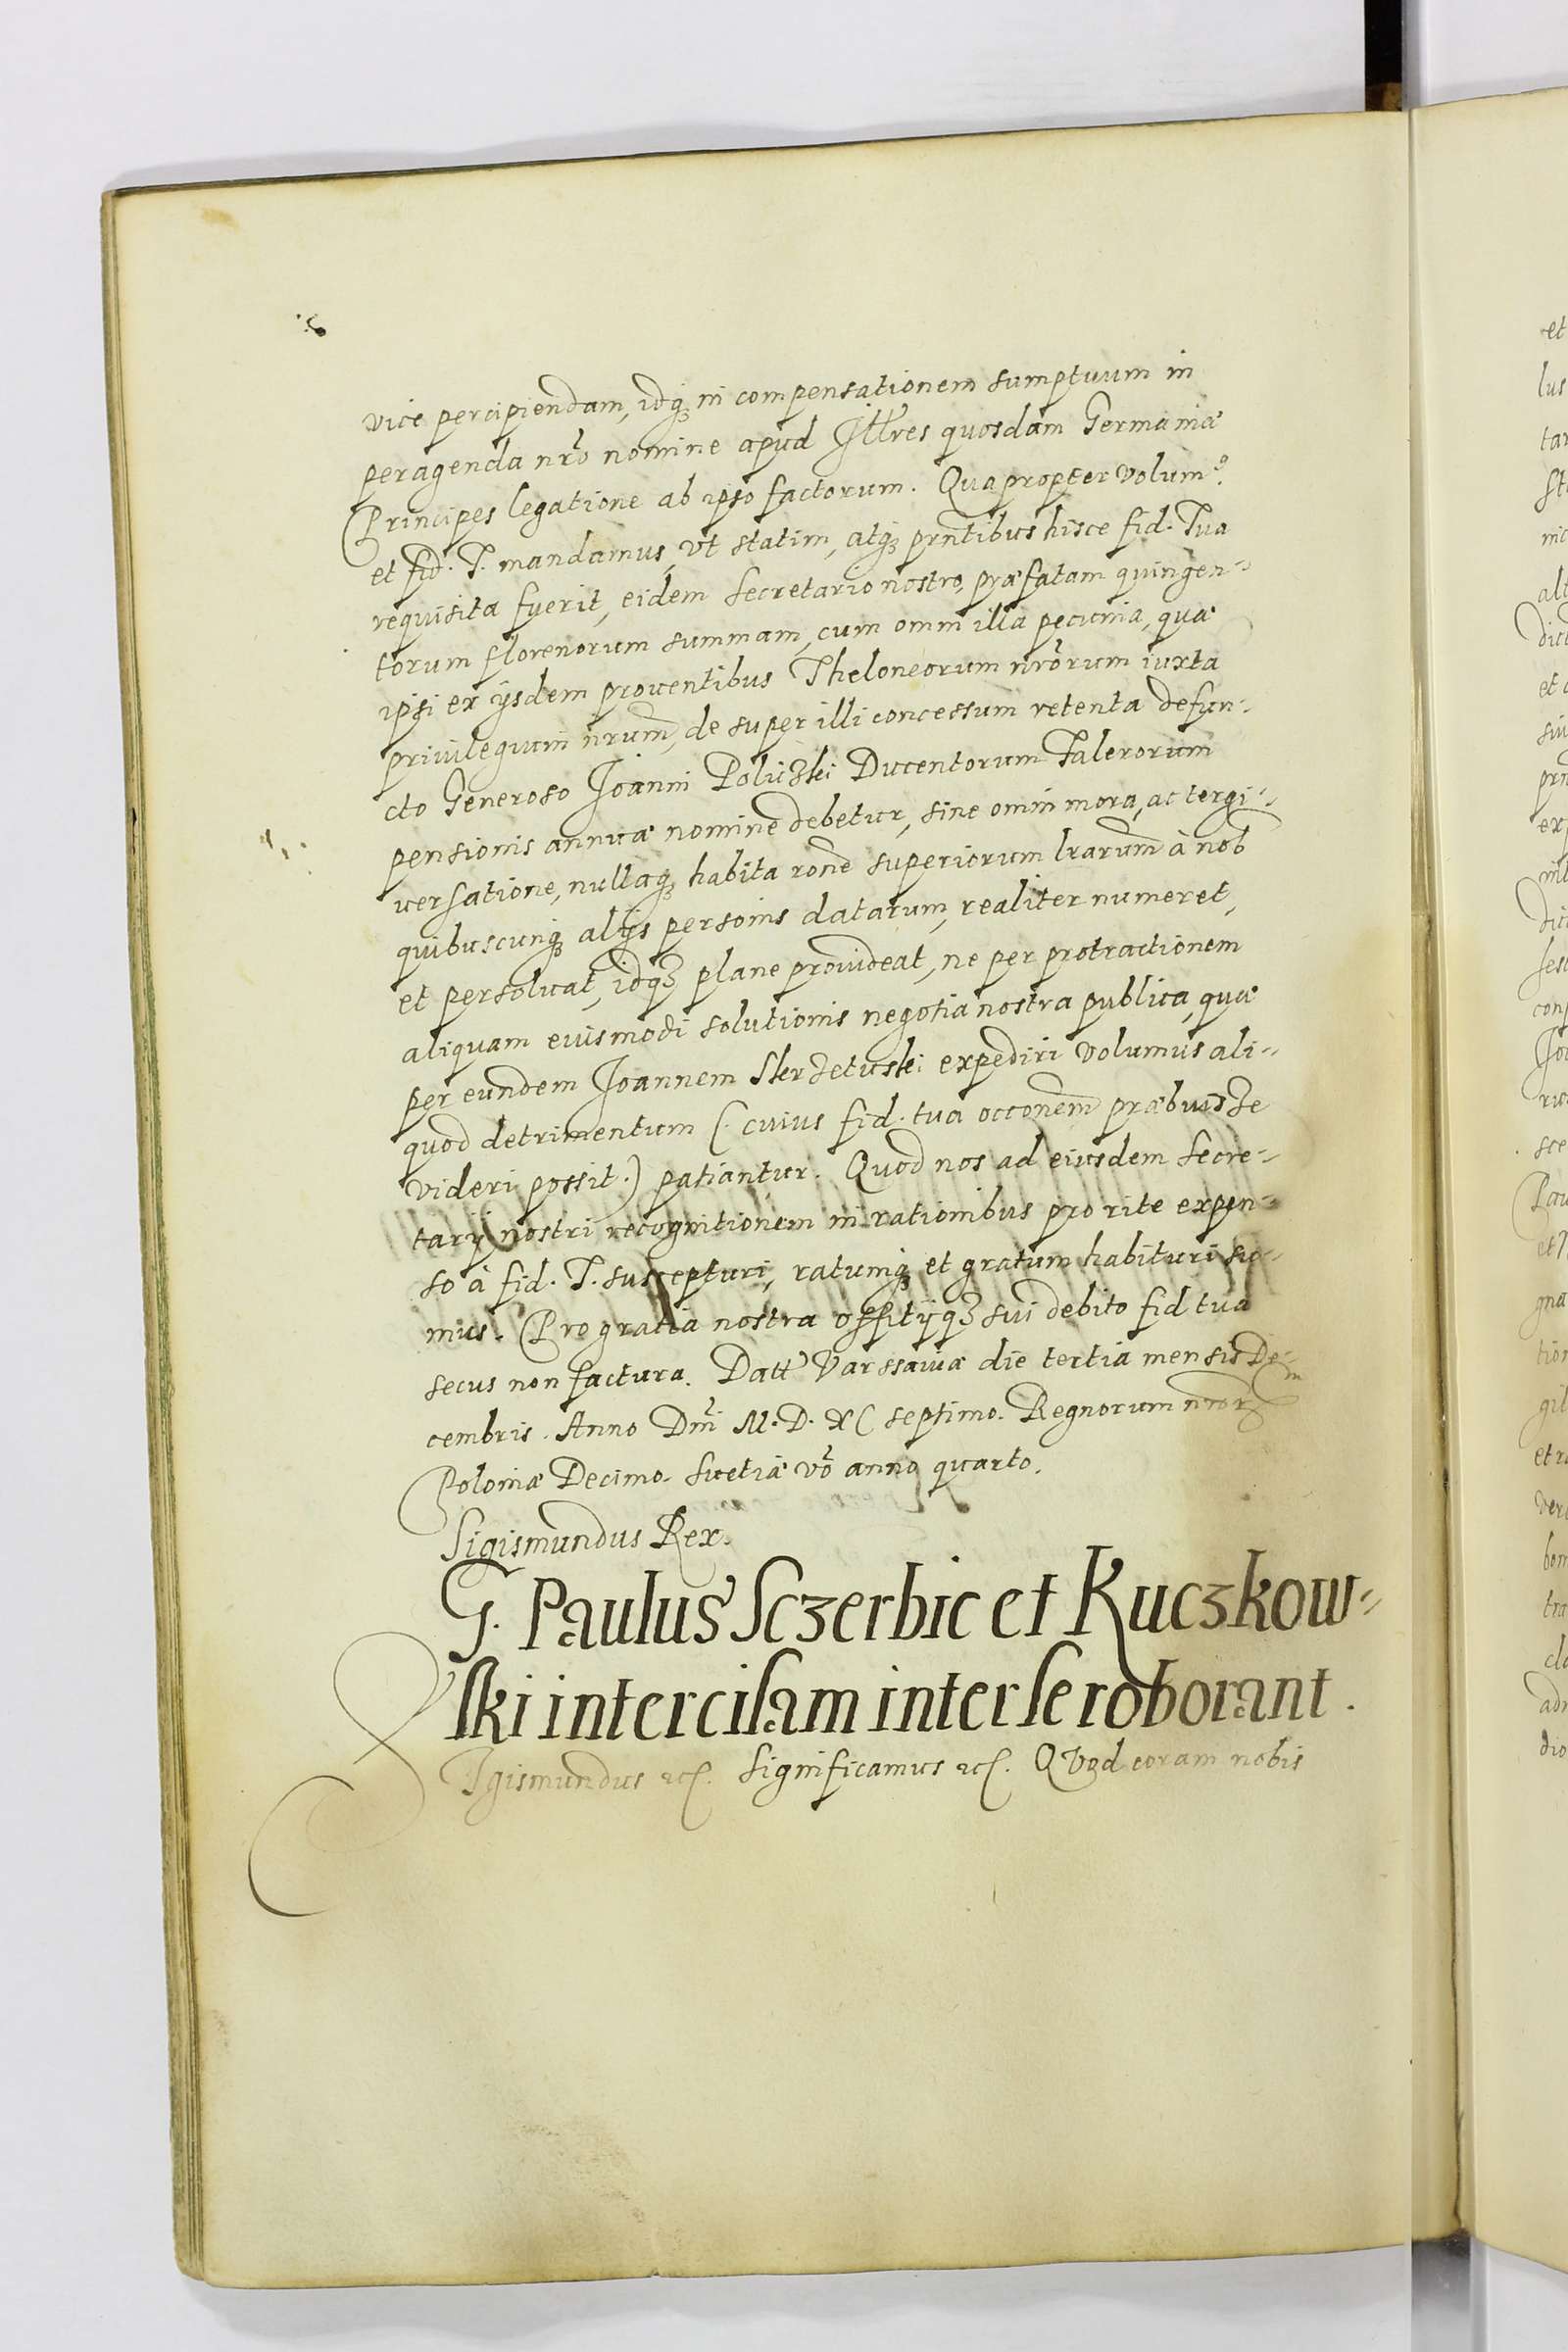 vice percipiendam, idq₃ in compensationem sumptuum in
peragenda nr̃o nomine apud Jll̃res quosdam Germaniæ
Principes legatione ab ipso factorum. Quapropter volum⁹
et fid. T. mandamus, vt statim, atq₃ prñtibus hisce fid. Tua
requisita fuerit, eidem Secretario nostro, præfatam quingen=
torum florenorum summam, cum omni illa pecunia, quæ
ipsi ex ijsdem prouentibus Theloneorum nrõrum iuxta
priuilegium nrum̃, de super illi concessum retenta defun=
cto Generoso Joanni Policzki Ducentorum Talerorum
pensionis annuæ nomine debetur, sine omni mora, ac tergi=
uersatione, nullaq₃ habita rone̱ superiorum lrarum̃ à nob
quibuscunq₃ alijs personis datarum, realiter numeret,
et persoluat, idq₃ plane prouideat, ne per protractionem
aliquam eiusmodi solutionis negotia nostra publica, quæ
per eundem Joannem Skrzetuski expediri volumus ali=
quod detrimentum (. cuius fid. tua occonem̃ præbuisse
videri possit.) patiantur. Quod nos ad eiusdem Secre=
tarij nostri recognitionem in rationibus pro rite expen=
so à fid. T. suscepturi, ratumq₃ et gratum habituri su=
mus. Pro gratia nostra offitijq₃ sui debito fid tua
secus non factura. Datt Varssauiæ die tertia mensis De=
cembris. Anno Dñi M. D. XC septimo. Regnorum nror
Poloniæ Decimo. Suetiæ vō anno quarto.
Sigismundus Rex.
G. Paulus Sczerbic et Kuczkow=
ski intercisam inter se roborant.
Sigismundus etc. Significamus etc. Quod coram nobis